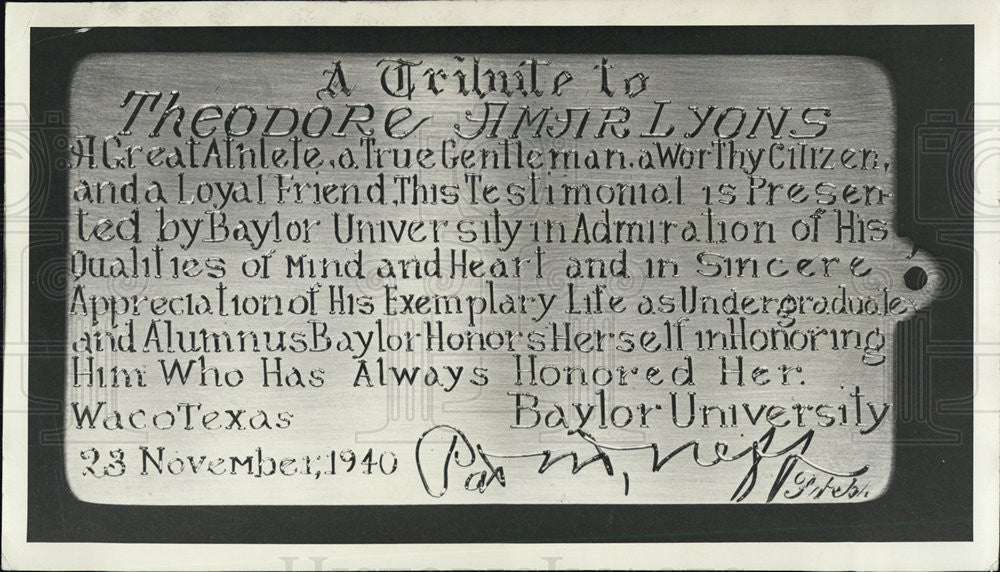 A Tribute to
THEODORE AMAR LYONS
A Great Athlete, a True Gentleman, a Worthy Citizen,
and a Loyal Friend, This Testimonial is Presen-
ted by Baylor University in Admiration of His
Qualities of Mind and Heart and in Sincere
Appreciation of His Exemplary Life as Undergraduate
and Alumnus Baylor Honors Herself in Honoring
Him Who Has Always Honored Her.
Waco Texas Baylor University
23 November, 1940 Pat M. Neff
Historic Images